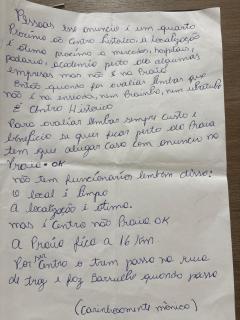 Pessoas esse anuncio é um quarto
Proximo ao Centro historico, a localização
é otima proximo a mercados, hospitais,
padaria, academia perto de algumas
empresas mas não é na Praia
Então quando for avaliar lembar que
não é na enseada, nem Prainha, nem ubatuba
É Centro Historico
Para avaliar lembar sempre custo e
beneficio se quer ficar perto da Praia
tem que alugar casa com anuncio na
Praia. OK
não tem funcionarios lembem disso:
O local é limpo
A localização é otima.
mas é Centro não Praia OK
A Praia fica a 16 Km.
Por ser Centro o trem passa na rua
de traz e faz Barrulho quando passa
(Carinhosamente mônica)